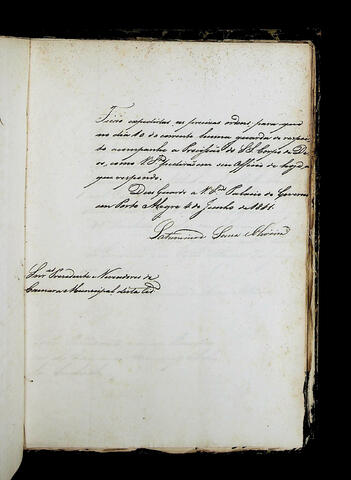 Ficão expedidas as precisas ordens para que
no dia 10 do corrente huma guarda de respei-
to acompanhe a Procissão de SS. Corpo de De-
os, como VS.ᵃˢ pedirão em seu Officio de hoje a
que respondo.
Deos Guarde a VS.ᵃˢ Palacio do Governo
em Porto Alegre 4 de Junho de 1841.
Saturnino de Souza e Oliveira
Snr.ᵉˢ Presidente e Vereadores da
Camara Municipal desta Cid.ᵉ